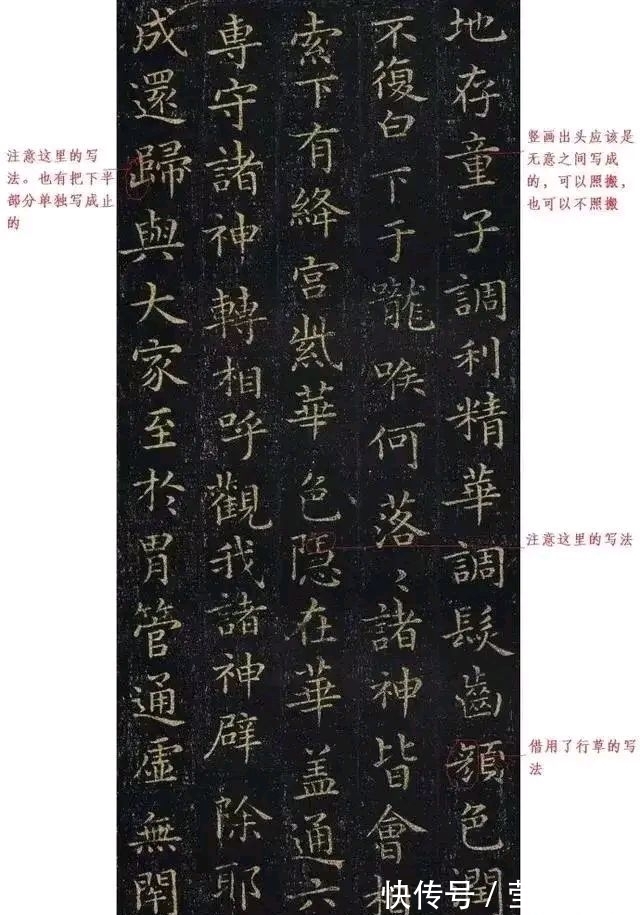 地存童子調利精華調髮齒顏色潤
不復白下于嚨喉何落〻諸神皆會相
索下有絳宮紫華色隱在華蓋通六
專守諸神轉相呼觀我諸神辟除耶
成還歸與大家至於胃管通虛無閇
竖画出头应该是
无意之间写成
的，可以照搬，
也可以不照搬
注意这里的写法
借用了行草的写
法
注意这里的写
法。也有把下半
部分单独写成止
的
快传号/